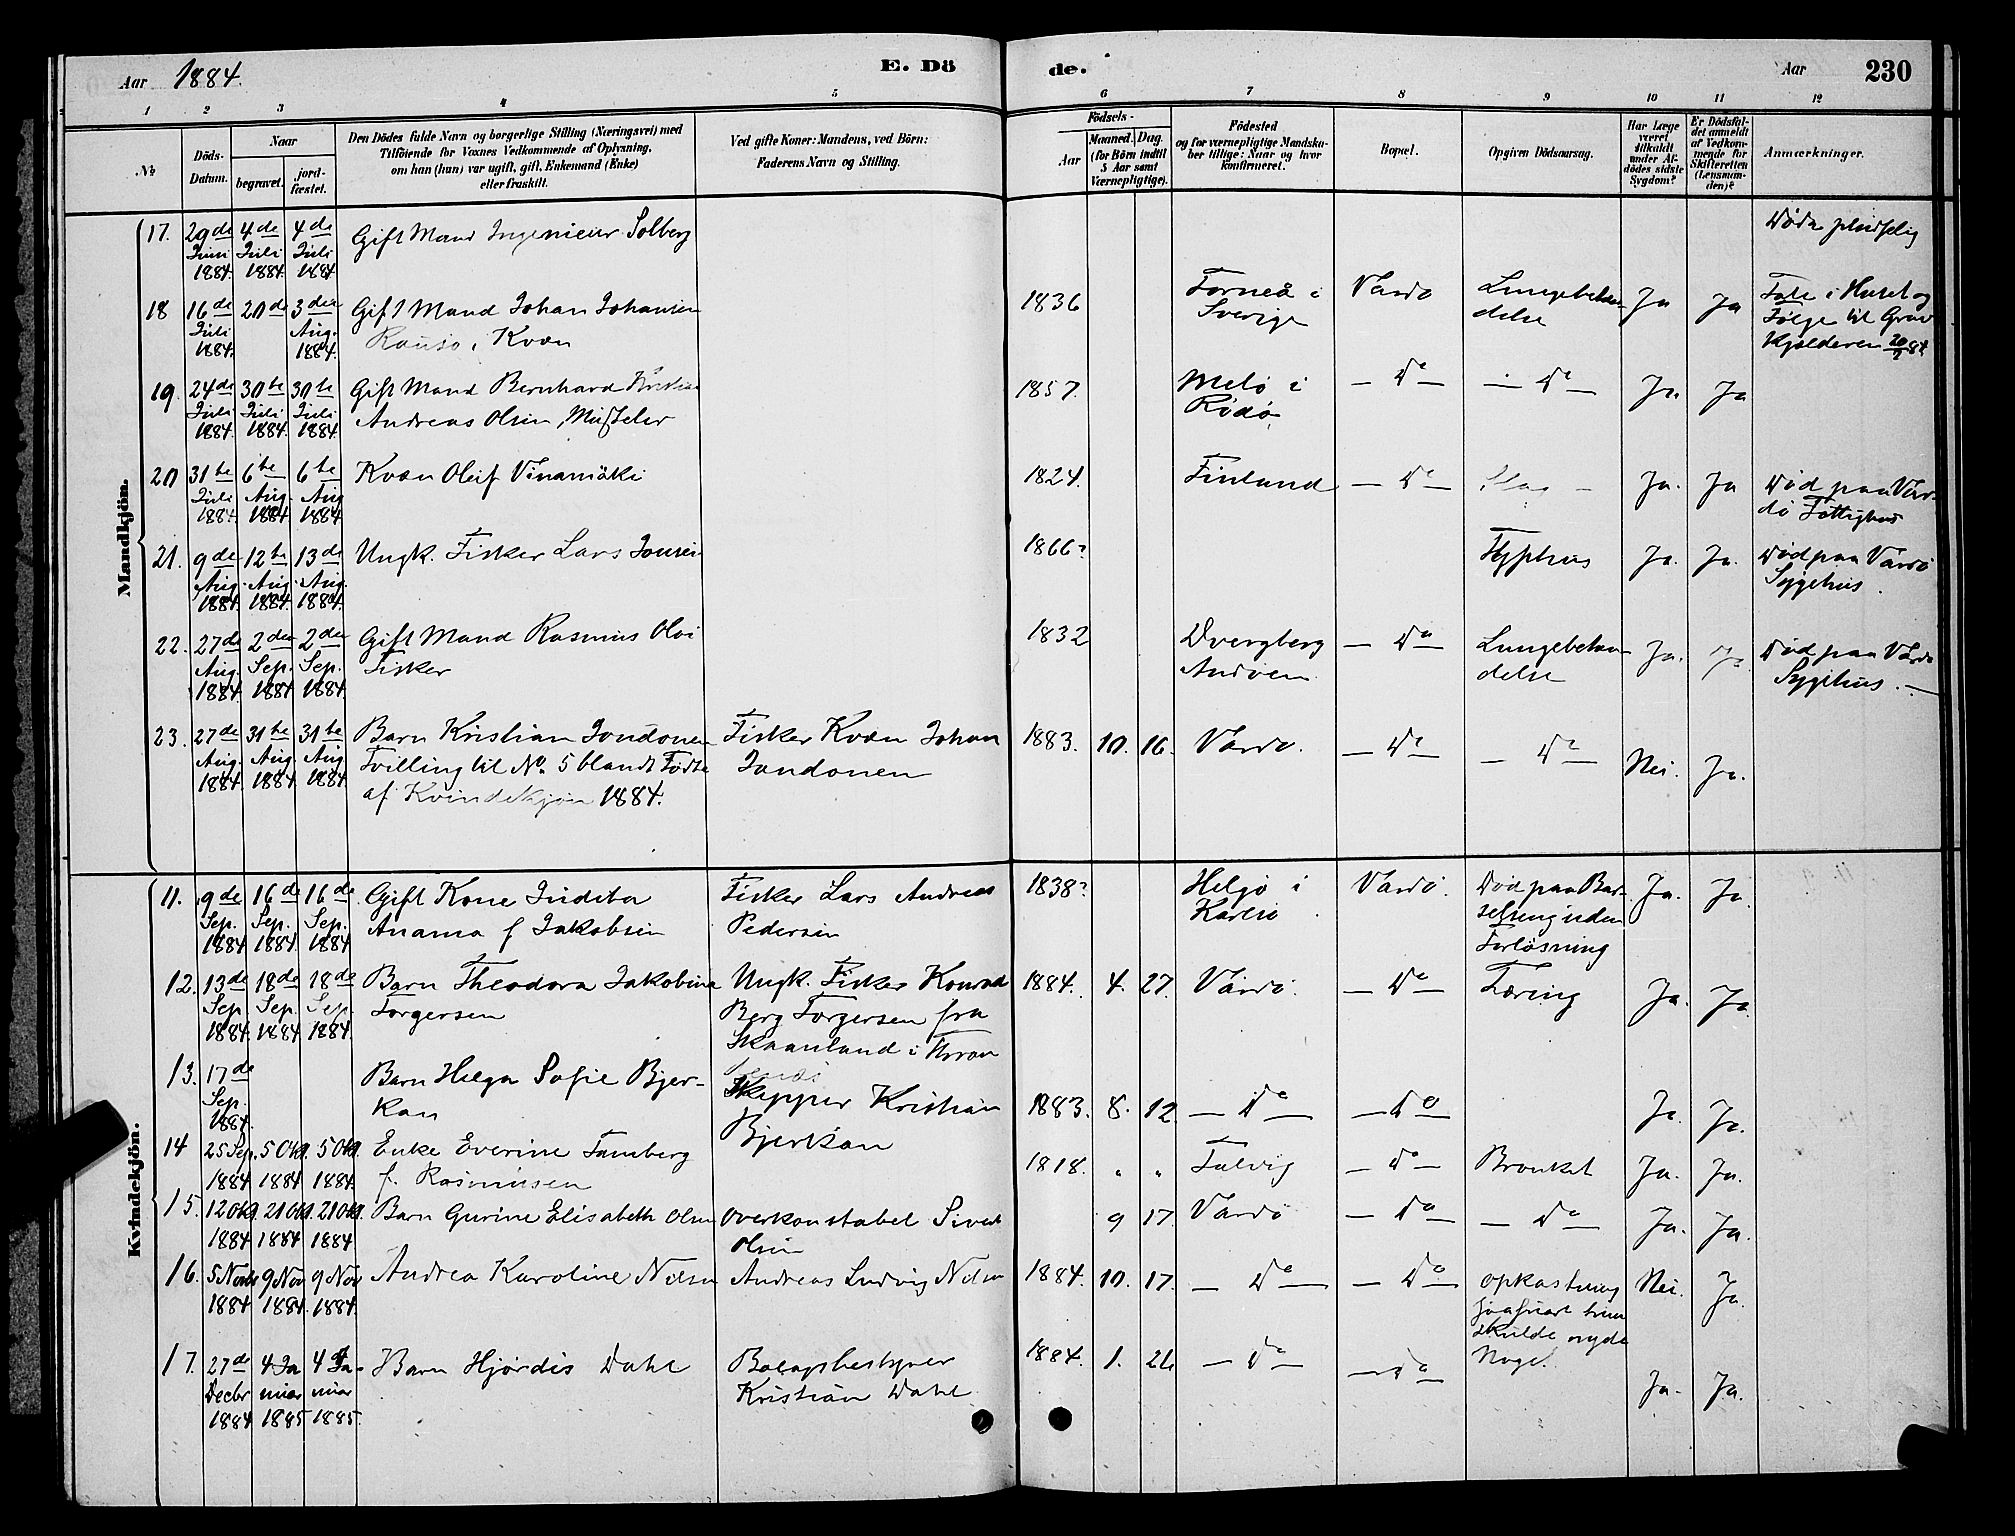 Aar 1884.
E. Dö
de.
Aar 230
1 2 3 4 5 6 7 8 9 10 11 12
№
Döds-
Datum.
Naar
begravet.
jord-
fæstet.
Den Dödes fulde Navn og borgerlige Stilling (Næringsvei) med
Tilföiende for Voxnes Vedkommende af Oplysning,
om han (hun) var ugift, gift, Enkemand (Enke)
eller fraskilt.
Ved gifte Koner: Mandens, ved Börn:
Faderens Navn og Stilling.
Födsels-
Aar
Maaned. Dag.
(for Börn indtil
5 Aar samt
Værnepligtige).
Födested
og for værnepligtige Mandska-
ber tillige: Naar og hvor
konfirmeret.
Bopæl.
Opgiven Dödsaarsag.
Har Læge
været
tilkaldt
under Af-
dödes sidste
Sygdom?
Er Dödsfal-
det anmeldt
af Vedkom-
mende for
Skifteretten
(Lensman-
den)?
Anmærkninger.
Mandkjön.
17. 29de Juni 1884. 4de Juli 1884. 4de Juli 1884.
Gift Mand Ingenieur Solberg
Døde pludselig
18 16de Juli 1884. 20de 3die Aug. 1884.
Gift Mand Johan Johansen
Kvæn
1836
Torneå i
Sverige
Vardø
Lungebetæn-
delse
Ja Ja
Tale i Huset og
Følge til Grav
Kjælderen
19. 24de Juli 1884. 30te Juli 1884. 30te Juli 1884.
Gift Mand Bernhard Kristian
Andreas Olsen,
1857.
Melø i
Rødø.
— Do — — Do —
Ja. Ja
20 31te Juli 1884 6te Aug. 1884 6te Aug 1884
Kvæn Olif Vinamäki
1824.
Finland
— Do —
Slag —
Ja. Ja
Død paa Var-
dø Fattighus
21. 9de Aug. 1884. 12te Aug. 1884. 13de Aug. 1884.
Ungk. Fisker Lars Jonsen
1866?
Typhus
Ja. Ja.
Død paa Vardø
Sygehus.
22. 27de Aug 1884. 2den Sep. 1884 2den Sep. 1884
Gift Mand Rasmus
Fisker
1832
Dverberg
Andøen.
— Do —
Lungebetæn-
delse
Ja. Ja
Død paa Vardø
Sygehus. —
23. 27de Aug. 1884 31te Aug 1884 31te Aug 1884
Barn Kristian Jondonen
Tvilling til No. 5 blandt Fødte
af Kvindekjøn 1884.
Fisker Kvæn Johan
Jondonen
1883. 10. 16.
Vardø.
— Do — — Do —
Nei. Ja.
Kvindekjön.
11. 9de Sep. 1884 16de Sep. 1884 16de Sep. 1884
Gift Kone Judita
Anama f Jakobsen
Fisker Lars Andreas
Pedersen
1838?
Helgø i
Karlsø
Vardø.
Død paa Bar-
selseng uden
Forløsning
Ja. Ja.
12. 13de Sep 1884. 18de Sep. 1884 18de Sep. 1884.
Barn Theodora Jakobina
Torgersen
Ungk. Fisker Konrad
Berg Torgersen fra
Skaanland i
1884. 4. 27.
Vardø.
— Do —
Tæring
Ja. Ja.
13. 17de Sep. 1884.
Barn Helga Sofie Bjer-
kan
Skipper Kristian
Bjerkan
1883. 8. 12.
— Do — — Do —
Ja. Ja.
14 25 Sep. 1884 5 Okt. 1884 5 Okt. 1884.
Enke Everine Tamberg
f. Rasmusen
1818. " "
Talvig
— Do —
Bronket
Ja. Ja.
15. 12 Okt. 1884 21 Okt. 1884 21 Okt. 1884
Barn Gurine Elisabeth Olsen
Overkonstabel Sivert
Olsen
9 17.
Vardø
— Do — — Do —
Ja. Ja.
16. 5 Novbr 1884 9 Nov 1884. 9 Nov 1884.
Andrea Karoline Nilsen
Andreas Ludvig Nilsen
1884. 10. 17.
— Do — — Do —
Opkastning
saasnart hun
skulde nyde
Noget.
Nei. Ja.
17. 27de Decbr 1884 4 Januar 1885 4 Januar 1885.
Barn Hjørdis Dahl
Bolagsbestyrer
Kristian Dahl
1884. 1. 26
— Do — — Do —
Ja. Ja.